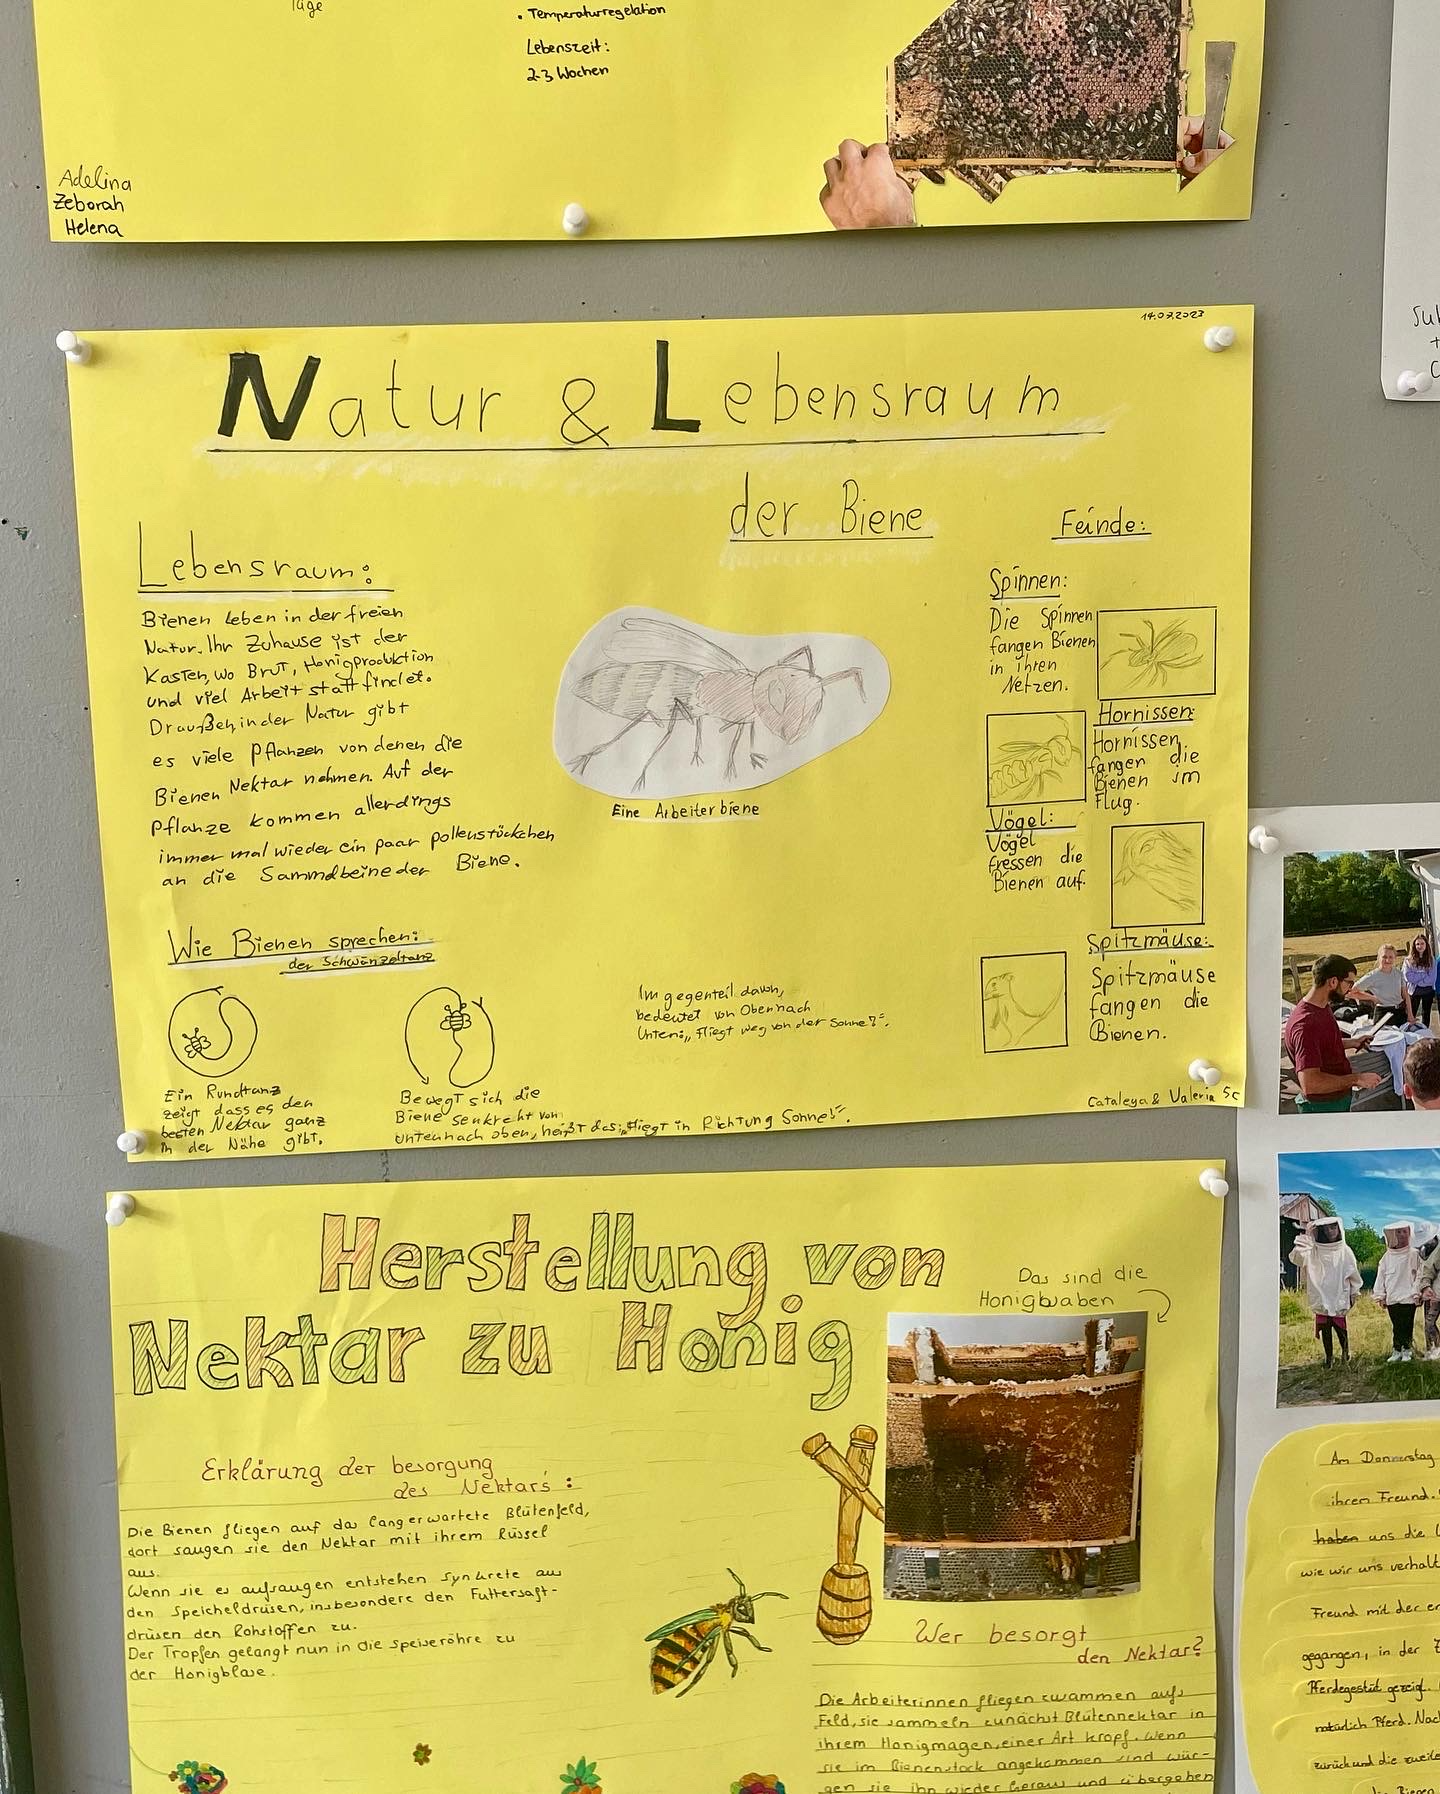 Tage
• Temperaturregelation
Lebenszeit:
2-3 Wochen
Adelina
Zeborah
Helena
14.07.2023
Natur & Lebensraum
der Biene
Lebensraum:
Bienen leben in der freien
Natur. Ihr Zuhause ist der
Kasten, wo Brut, Honigproduktion
und viel Arbeit stattfindet.
Draußen, in der Natur gibt
es viele Pflanzen von denen die
Bienen Nektar nehmen. Auf der
Pflanze kommen allerdings
immer mal wieder ein paar pollenstückchen
an die Sammelbeine der Biene.
Eine Arbeiterbiene
Feinde:
Spinnen:
Die Spinnen
fangen Bienen
in ihren
Netzen.
Hornissen:
Hornissen
fangen die
Bienen im
Flug.
Vögel:
Vögel
fressen die
Bienen auf.
Spitzmäuse:
Spitzmäuse
fangen die
Bienen.
Wie Bienen sprechen:
der Schwänzeltanz
Ein Rundtanz
zeigt dass es den
besten Nektar ganz
in der Nähe gibt.
Bewegt sich die
Biene senkrecht von
unten nach oben, heißt das: „fliegt in Richtung Sonne!“.
Im gegenteil davon,
bedeutet von Oben nach
Unten: „fliegt weg von der Sonne!“.
Cataleya & Valeria 5c
Herstellung von
Nektar zu Honig
Das sind die
Honigwaben
Erklärung der besorgung
des Nektars:
Die Bienen fliegen auf das lang erwartete Blütenfeld,
dort saugen sie den Nektar mit ihrem Rüssel
aus.
Wenn sie es aufsaugen entstehen Synkrete aus
den Speicheldrüsen, insbesondere den Futtersaft-
drüsen den Rohstoffen zu.
Der Tropfen gelangt nun in die speiseröhre zu
der Honigblase.
Wer besorgt
den Nektar?
Die Arbeiterinnen fliegen zusammen aufs
Feld, sie sammeln zunächst Blütennektar in
ihrem Honigmagen, einer Art kropf. Wenn
sie im Bienenstock angekommen sind wür-
gen sie ihn wieder heraus und übergeben
Am Donnerstag
ihrem Freund.
haben uns die
wie wir uns verhalt
Freund mit der er
gegangen, in der
Pferdegestüt gezeigt.
natürlich Pferd. Nac
zurück und die zweite
die Bienen